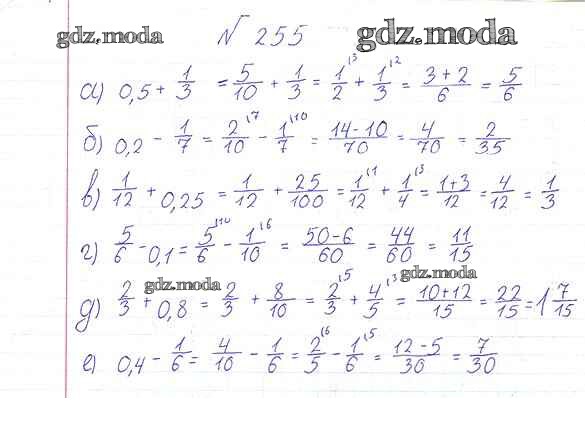 gdz.moda № 255 gdz.moda
а) 0,5 + 1/3 = 5/10 + 1/3 = 1/2 \3 + 1/3 \2 = (3+2)/6 = 5/6
б) 0,2 - 1/7 = 2/10 \7 - 1/7 \10 = (14-10)/70 = 4/70 = 2/35
в) 1/12 + 0,25 = 1/12 + 25/100 = 1/12 \1 + 1/4 \3 = (1+3)/12 = 4/12 = 1/3
г) 5/6 - 0,1 = 5/6 \10 - 1/10 \6 = (50-6)/60 = 44/60 = 11/15
gdz.moda gdz.moda
д) 2/3 + 0,8 = 2/3 + 8/10 = 2/3 \5 + 4/5 \3 = (10+12)/15 = 22/15 = 1 7/15
е) 0,4 - 1/6 = 4/10 - 1/6 = 2/5 \6 - 1/6 \5 = (12-5)/30 = 7/30